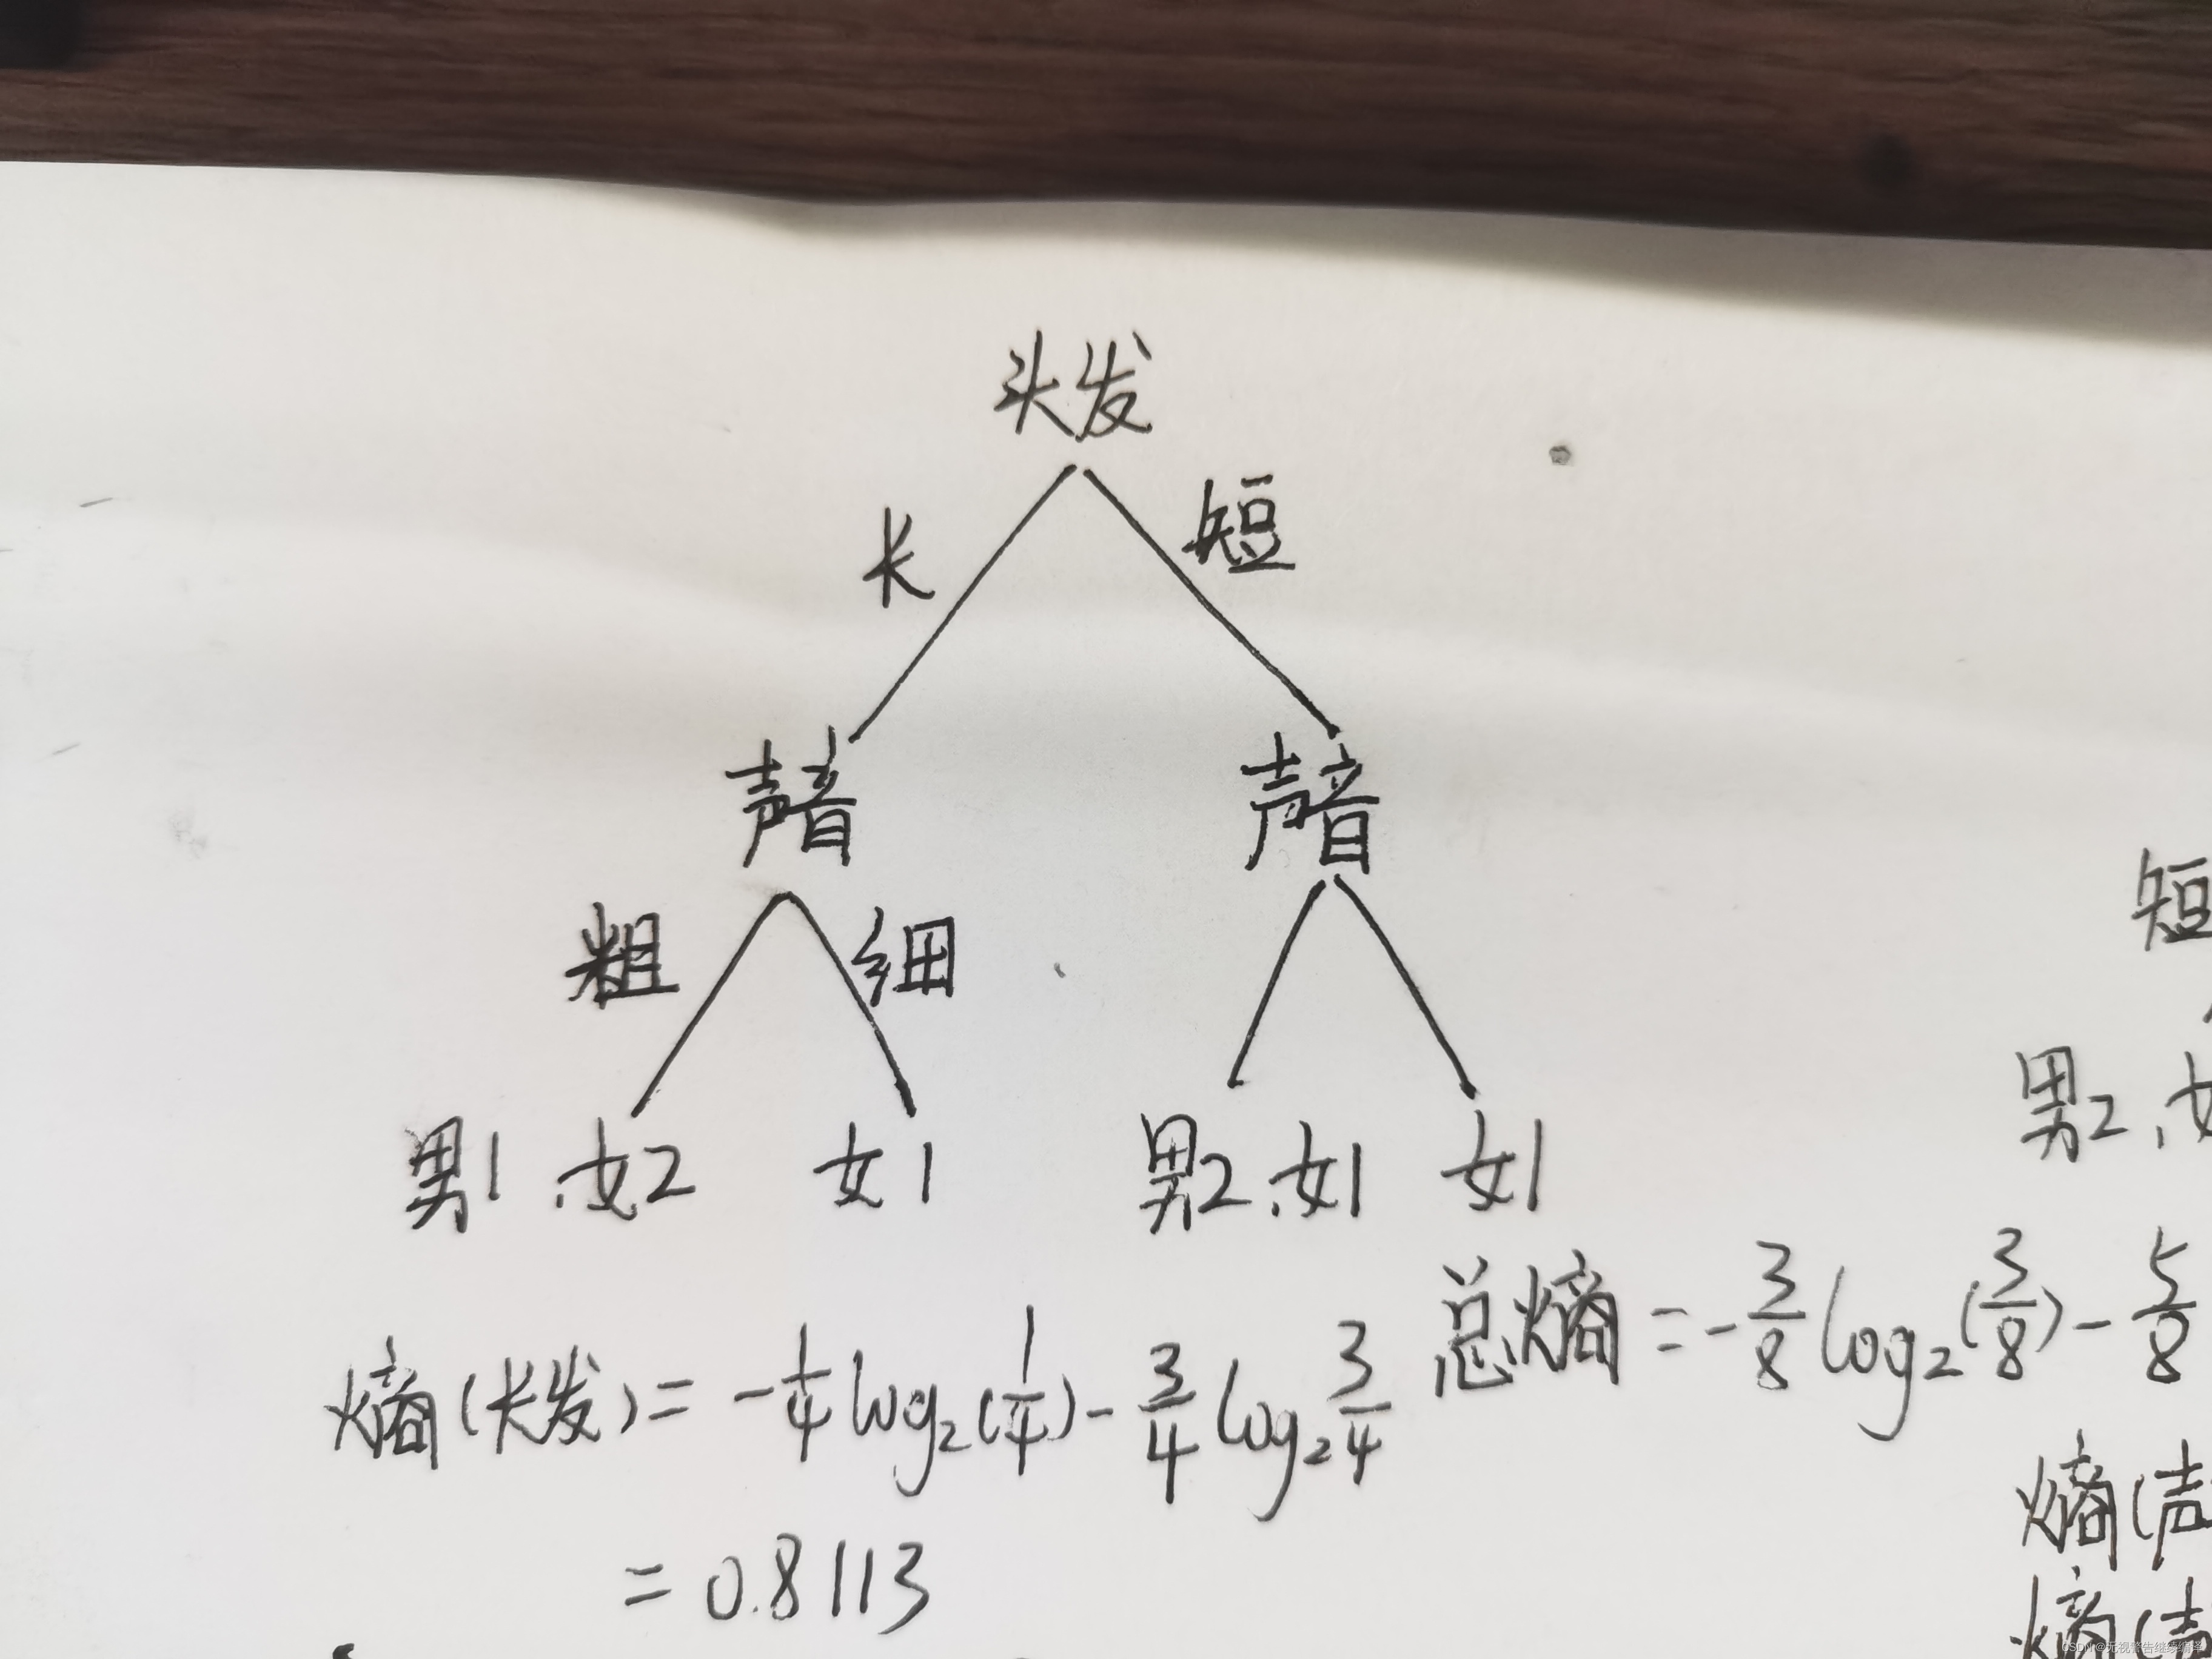 头发
长 短
声音 声音
粗 细
短
男1、女2 女1 男2、女1 女1
男2、女
总熵 = -3/8 log₂(3/8) - 5/8
熵(长发) = -1/4 log₂(1/4) - 3/4 log₂ 3/4
熵(声
= 0.8113
熵(声
CSDN @无视警告继续编译